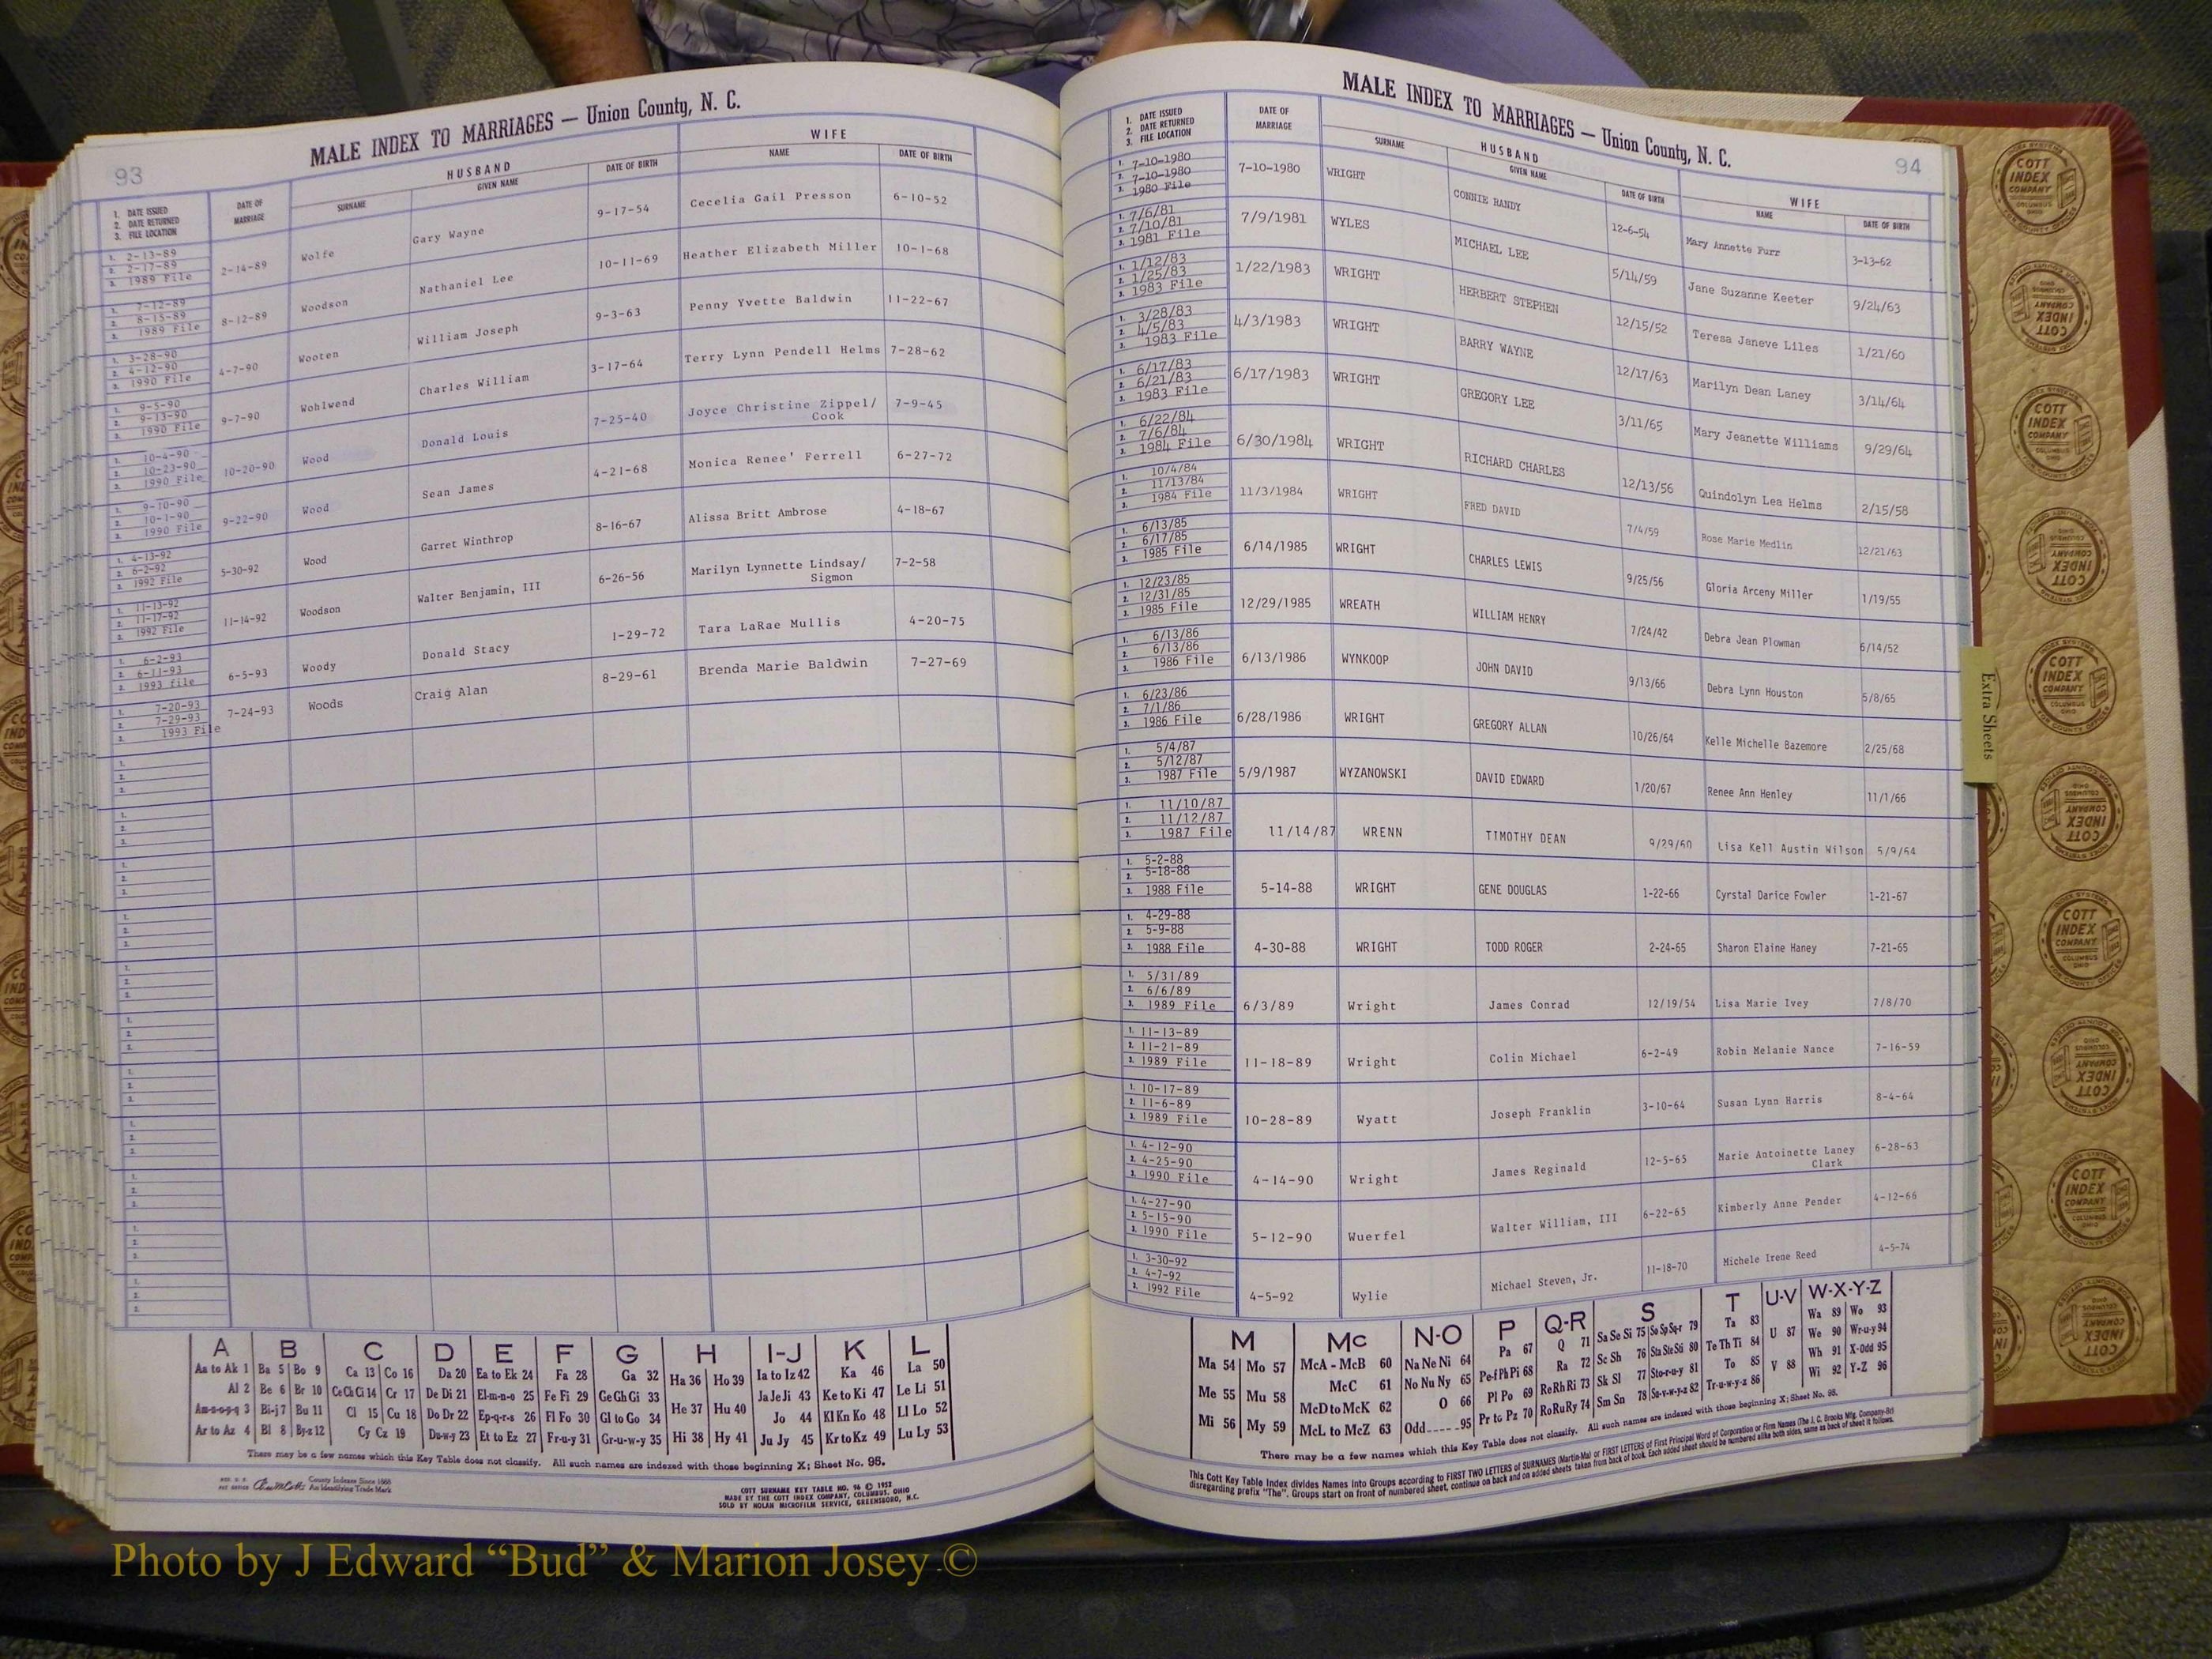 93
MALE INDEX TO MARRIAGES — Union County, N. C.
1. DATE ISSUED
2. DATE RETURNED
3. FILE LOCATION
DATE OF MARRIAGE
HUSBAND
SURNAME GIVEN NAME DATE OF BIRTH
WIFE
NAME DATE OF BIRTH
1. 2-13-89
2. 2-17-89 2-14-89 Wolfe Gary Wayne 9-17-54 Cecelia Gail Presson 6-10-52
3. 1989 File
1. 7-12-89
2. 8-15-89 8-12-89 Woodson Nathaniel Lee 10-11-69 Heather Elizabeth Miller 10-1-68
3. 1989 File
1. 3-28-90
2. 4-12-90 4-7-90 Wooten William Joseph 9-3-63 Penny Yvette Baldwin 11-22-67
3. 1990 File
1. 9-5-90
2. 9-13-90 9-7-90 Wohlwend Charles William 3-17-64 Terry Lynn Pendell Helms 7-28-62
3. 1990 File
1. 10-4-90
2. 10-23-90 10-20-90 Wood Donald Louis 7-25-40 Joyce Christine Zippel/ 7-9-45
Cook
3. 1990 File
1. 9-10-90
2. 10-1-90 9-22-90 Wood Sean James 4-21-68 Monica Renee' Ferrell 6-27-72
3. 1990 File
1. 4-13-92
2. 6-2-92 5-30-92 Wood Garret Winthrop 8-16-67 Alissa Britt Ambrose 4-18-67
3. 1992 File
1. 11-13-92
2. 11-17-92 11-14-92 Woodson Walter Benjamin, III 6-26-56 Marilyn Lynnette Lindsay/ 7-2-58
Sigmon
3. 1992 File
1. 6-2-93
2. 6-11-93 6-5-93 Woody Donald Stacy 1-29-72 Tara LaRae Mullis 4-20-75
3. 1993 file
1. 7-20-93
2. 7-29-93 7-24-93 Woods Craig Alan 8-29-61 Brenda Marie Baldwin 7-27-69
3. 1993 File
A B C D E F G H I-J K L
Aa to Ak 1 Ba 5 Bo 9 Ca 13 Co 16 Da 20 Ea to Ek 24 Fa 28 Ga 32 Ha 36 Ho 39 Ia to Iz 42 Ka 46 La 50
Al 2 Be 6 Br 10 Ce Ch Ci 14 Cr 17 De Di 21 El-m-n-o 25 Fe Fi 29 Ge Gh Gi 33 He 37 Hu 40 Ja Je Ji 43 Ke to Ki 47 Le Li 51
Am-n-o-p-q 3 Bi-j 7 Bu 11 Cl 15 Cu 18 Do Dr 22 Ep-q-r-s 26 Fl Fo 30 Gl to Go 34 Jo 44 Kl Kn Ko 48 Ll Lo 52
Ar to Az 4 Bl 8 By-z 12 Cy Cz 19 Du-w-y 23 Et to Ez 27 Fr-u-y 31 Gr-u-w-y 35 Hi 38 Hy 41 Ju Jy 45 Kr to Kz 49 Lu Ly 53
There may be a few names which this Key Table does not classify. All such names are indexed with those beginning X; Sheet No. 95.
County Indexes Since 1888
An Identifying Trade Mark
COTT SURNAME KEY TABLE NO. 96 © 1952
MADE BY THE COTT INDEX COMPANY, COLUMBUS, OHIO
SOLD BY NOLAN MICROFILM SERVICE, GREENSBORO, N.C.
MALE INDEX TO MARRIAGES — Union County, N. C.
94
1. DATE ISSUED
2. DATE RETURNED
3. FILE LOCATION
DATE OF MARRIAGE
HUSBAND
SURNAME GIVEN NAME DATE OF BIRTH
WIFE
NAME DATE OF BIRTH
1. 7-10-1980
2. 7-10-1980 7-10-1980 WRIGHT CONNIE RANDY 12-6-54 Mary Annette Furr 3-13-62
3. 1980 File
1. 7/6/81
2. 7/10/81 7/9/1981 WYLES MICHAEL LEE 5/14/59 Jane Suzanne Keeter 9/24/63
3. 1981 File
1. 1/12/83
2. 1/25/83 1/22/1983 WRIGHT HERBERT STEPHEN 12/15/52 Teresa Janeve Liles 1/21/60
3. 1983 File
1. 3/28/83
2. 4/5/83 4/3/1983 WRIGHT BARRY WAYNE 12/17/63 Marilyn Dean Laney 3/14/64
3. 1983 File
1. 6/17/83
2. 6/21/83 6/17/1983 WRIGHT GREGORY LEE 3/11/65 Mary Jeanette Williams 9/29/64
3. 1983 File
1. 6/22/84
2. 7/6/84 6/30/1984 WRIGHT RICHARD CHARLES 12/13/56 Quindolyn Lea Helms 2/15/58
3. 1984 File
1. 10/4/84
2. 11/13/84 11/3/1984 WRIGHT FRED DAVID 7/4/59 Rose Marie Medlin 12/21/63
3. 1984 File
1. 6/13/85
2. 6/17/85 6/14/1985 WRIGHT CHARLES LEWIS 9/25/56 Gloria Arceny Miller 1/19/55
3. 1985 File
1. 12/23/85
2. 12/31/85 12/29/1985 WREATH WILLIAM HENRY 7/24/42 Debra Jean Plowman 6/14/52
3. 1985 File
1. 6/13/86
2. 6/13/86 6/13/1986 WYNKOOP JOHN DAVID 9/13/66 Debra Lynn Houston 5/8/65
3. 1986 File
1. 6/23/86
2. 7/1/86 6/28/1986 WRIGHT GREGORY ALLAN 10/26/64 Kelle Michelle Bazemore 2/25/68
3. 1986 File
1. 5/4/87
2. 5/12/87 5/9/1987 WYZANOWSKI DAVID EDWARD 1/20/67 Renee Ann Henley 11/1/66
3. 1987 File
1. 11/10/87
2. 11/12/87 11/14/87 WRENN TIMOTHY DEAN 9/29/60 Lisa Kell Austin Wilson 5/9/64
3. 1987 File
1. 5-2-88
2. 5-18-88 5-14-88 WRIGHT GENE DOUGLAS 1-22-66 Cyrstal Darice Fowler 1-21-67
3. 1988 File
1. 4-29-88
2. 5-9-88 4-30-88 WRIGHT TODD ROGER 2-24-65 Sharon Elaine Haney 7-21-65
3. 1988 File
1. 5/31/89
2. 6/6/89 6/3/89 Wright James Conrad 12/19/54 Lisa Marie Ivey 7/8/70
3. 1989 File
1. 11-13-89
2. 11-21-89 11-18-89 Wright Colin Michael 6-2-49 Robin Melanie Nance 7-16-59
3. 1989 File
1. 10-17-89
2. 11-6-89 10-28-89 Wyatt Joseph Franklin 3-10-64 Susan Lynn Harris 8-4-64
3. 1989 File
1. 4-12-90
2. 4-25-90 4-14-90 Wright James Reginald 12-5-65 Marie Antoinette Laney 6-28-63
Clark
3. 1990 File
1. 4-27-90
2. 5-15-90 5-12-90 Wuerfel Walter William, III 6-22-65 Kimberly Anne Pender 4-12-66
3. 1990 File
1. 3-30-92
2. 4-7-92 4-5-92 Wylie Michael Steven, Jr. 11-18-70 Michele Irene Reed 4-5-74
3. 1992 File
M Mc N-O P Q-R S T U-V W-X-Y-Z
Ma 54 Mo 57 McA - McB 60 Na Ne Ni 64 Pa 67 Q 71 Sa Se Si 75 So Sp Sq-r 79 Ta 83 U 87 Wa 89 Wo 93
Me 55 Mu 58 McC 61 No Nu Ny 65 Pe-f Ph Pi 68 Ra 72 Sc Sh 76 Sta Ste Sti 80 Te Th Ti 84 We 90 Wr-u-y 94
McD to McK 62 O 66 Pl Po 69 Re Rh Ri 73 Sk Sl 77 Sto-r-u-y 81 To 85 V 88 Wh 91 X-Odd 95
Mi 56 My 59 McL to McZ 63 Odd 95 Pr to Pz 70 Ro Ru Ry 74 Sm Sn 78 Su-v-w-y-z 82 Tr-u-w-y-z 86 Wi 92 Y-Z 96
There may be a few names which this Key Table does not classify. All such names are indexed with those beginning X; Sheet No. 95.
This Cott Key Table Index divides Names into Groups according to FIRST TWO LETTERS of SURNAMES (Martin-Ma) or FIRST LETTERS of First Principal Word of Corporation or Firm Names (The J. C. Brooks Mfg. Company-Br)
disregarding prefix "The". Groups start on front of numbered sheet, continue on back and on added sheets taken from back of book. Each added sheet should be numbered alike both sides, same as back of sheet it follows.
Extra Sheets
COTT INDEX COMPANY COLUMBUS OHIO
Photo by J Edward “Bud” & Marion Josey ©